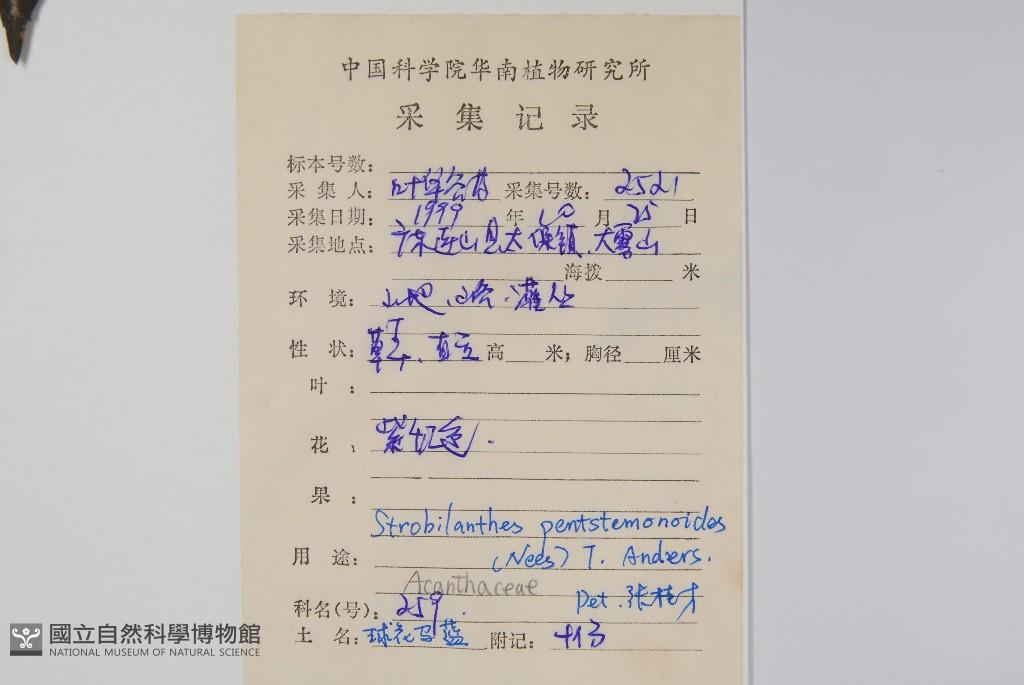 中国科学院华南植物研究所
采集记录
标本号数：
采集人： 叶华谷 采集号数： 2521
采集日期： 1999 年 10 月 25 日
采集地点： 连山县太保镇、大雾山
海拨 米
环境： 山地、山谷、灌丛
性状： 草本、直立 高 米；胸径 厘米
叶：
花： 紫红色.
果：
Strobilanthes pentstemonoides
(Nees) T. Anders.
用途：
Acanthaceae
Det. 张桂才
科名(号)： 259.
土名： 球花马蓝 附记：
國立自然科學博物館
NATIONAL MUSEUM OF NATURAL SCIENCE